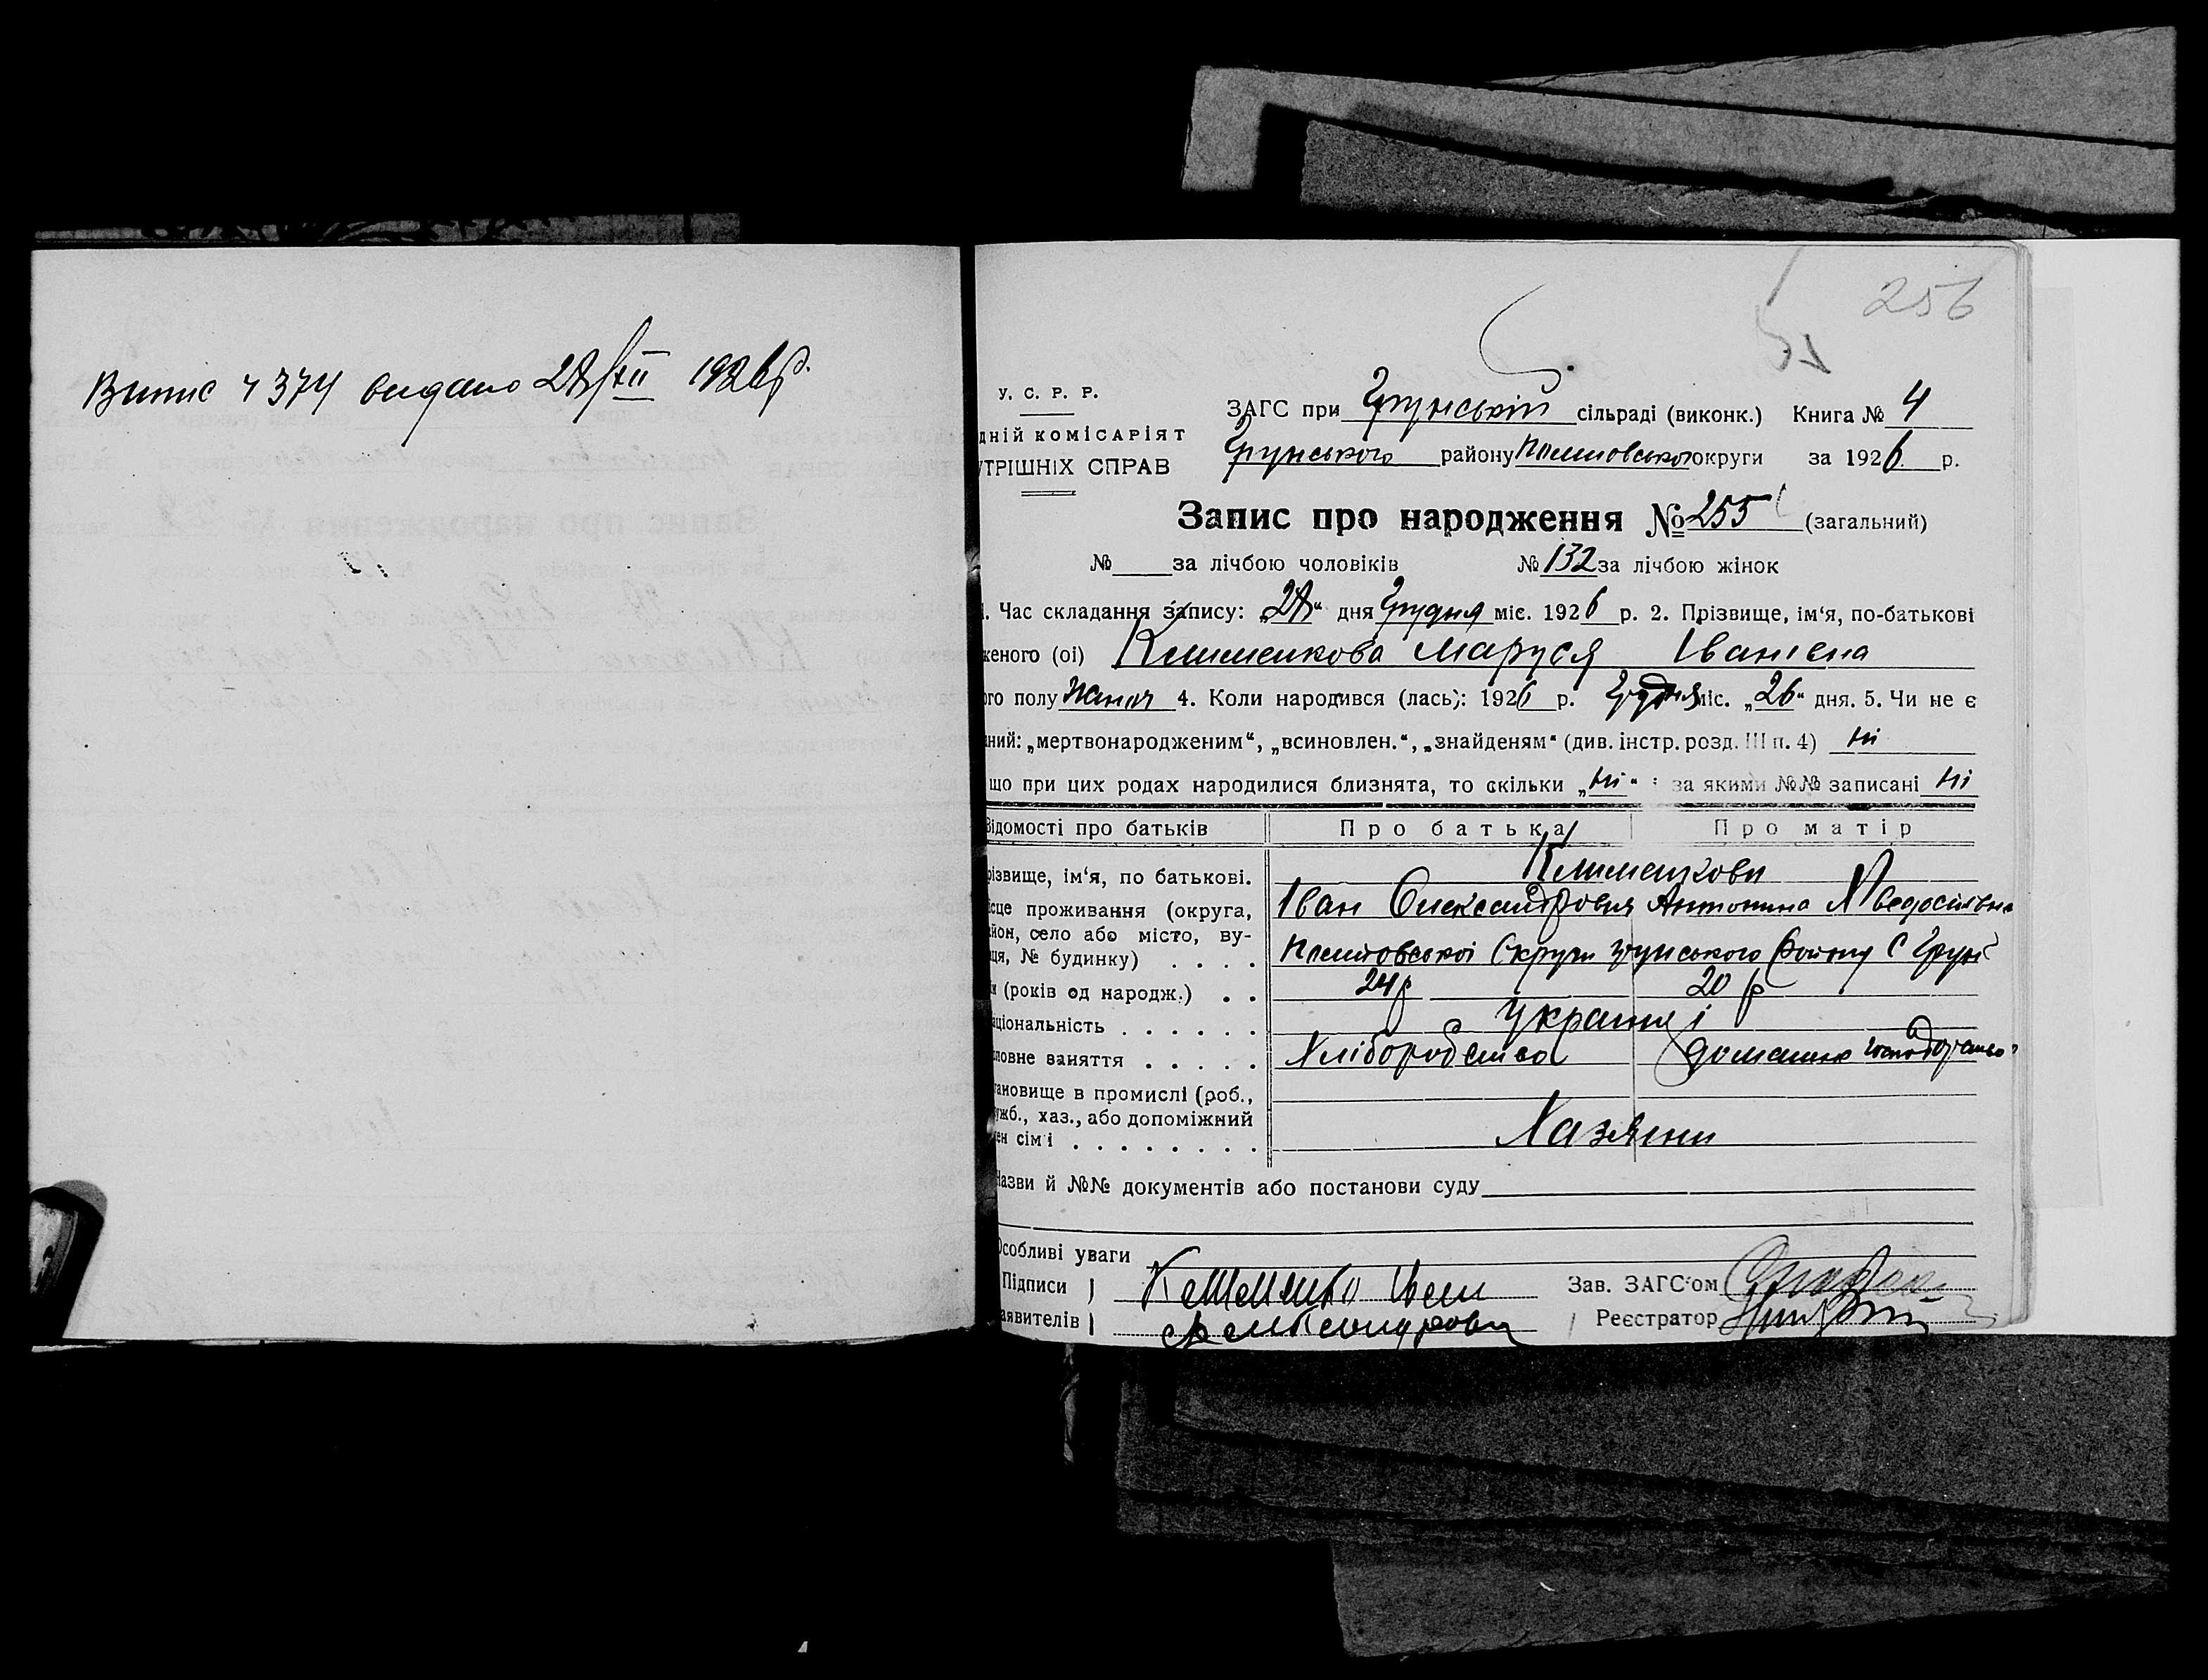 Випис ч 374 видано 28/XII 1926 р.
256
У. С. Р. Р.
дній комісаріят
утрішніх справ
ЗАГС при Грунській сільраді (виконк.) Книга № 4
Грунського району округи за 1926 р.
Запис про народження № 255 (загальний)
№ за лічбою чоловіків № 132 за лічбою жінок
1. Час складання запису: „28“ дня Грудня міс. 1926 р. 2. Прізвище, ім‘я, по-батькові
женого (ої) Клименкова Маруся Іванівна
ого полу Жіноч 4. Коли народився (лась): 1926 р. Грудня міс. „26“ дня. 5. Чи не є
ний: „мертвонародженим“, „всиновлен.“, „знайденям“ (див. інстр. розд. III п. 4) ні
що при цих родах народилися близнята, то скільки „ні“ : за якими №№ записані ні
Відомості про батьків Про батька Про матір
різвище, ім‘я, по батькові. Клименкови
ісце проживання (округа, Іван Олександрович Антонина
йон, село або місто, ву-
ця, № будинку) . . . . округи Грунського району с Грунь
и (років од народж.) . . 24 р 20 р
аціональність . . . . . . Українці
ловне заняття . . . . . Хліборобство домашнє господарство
тановище в промислі (роб.,
ужб., хаз., або допоміжний
ен сім‘ї . . . . . . . . Хазяини
Назви й №№ документів або постанови суду
Особливі уваги
Підписи Клеменко Иван Зав. ЗАГС‘ом
аявителів Александрович Реєстратор